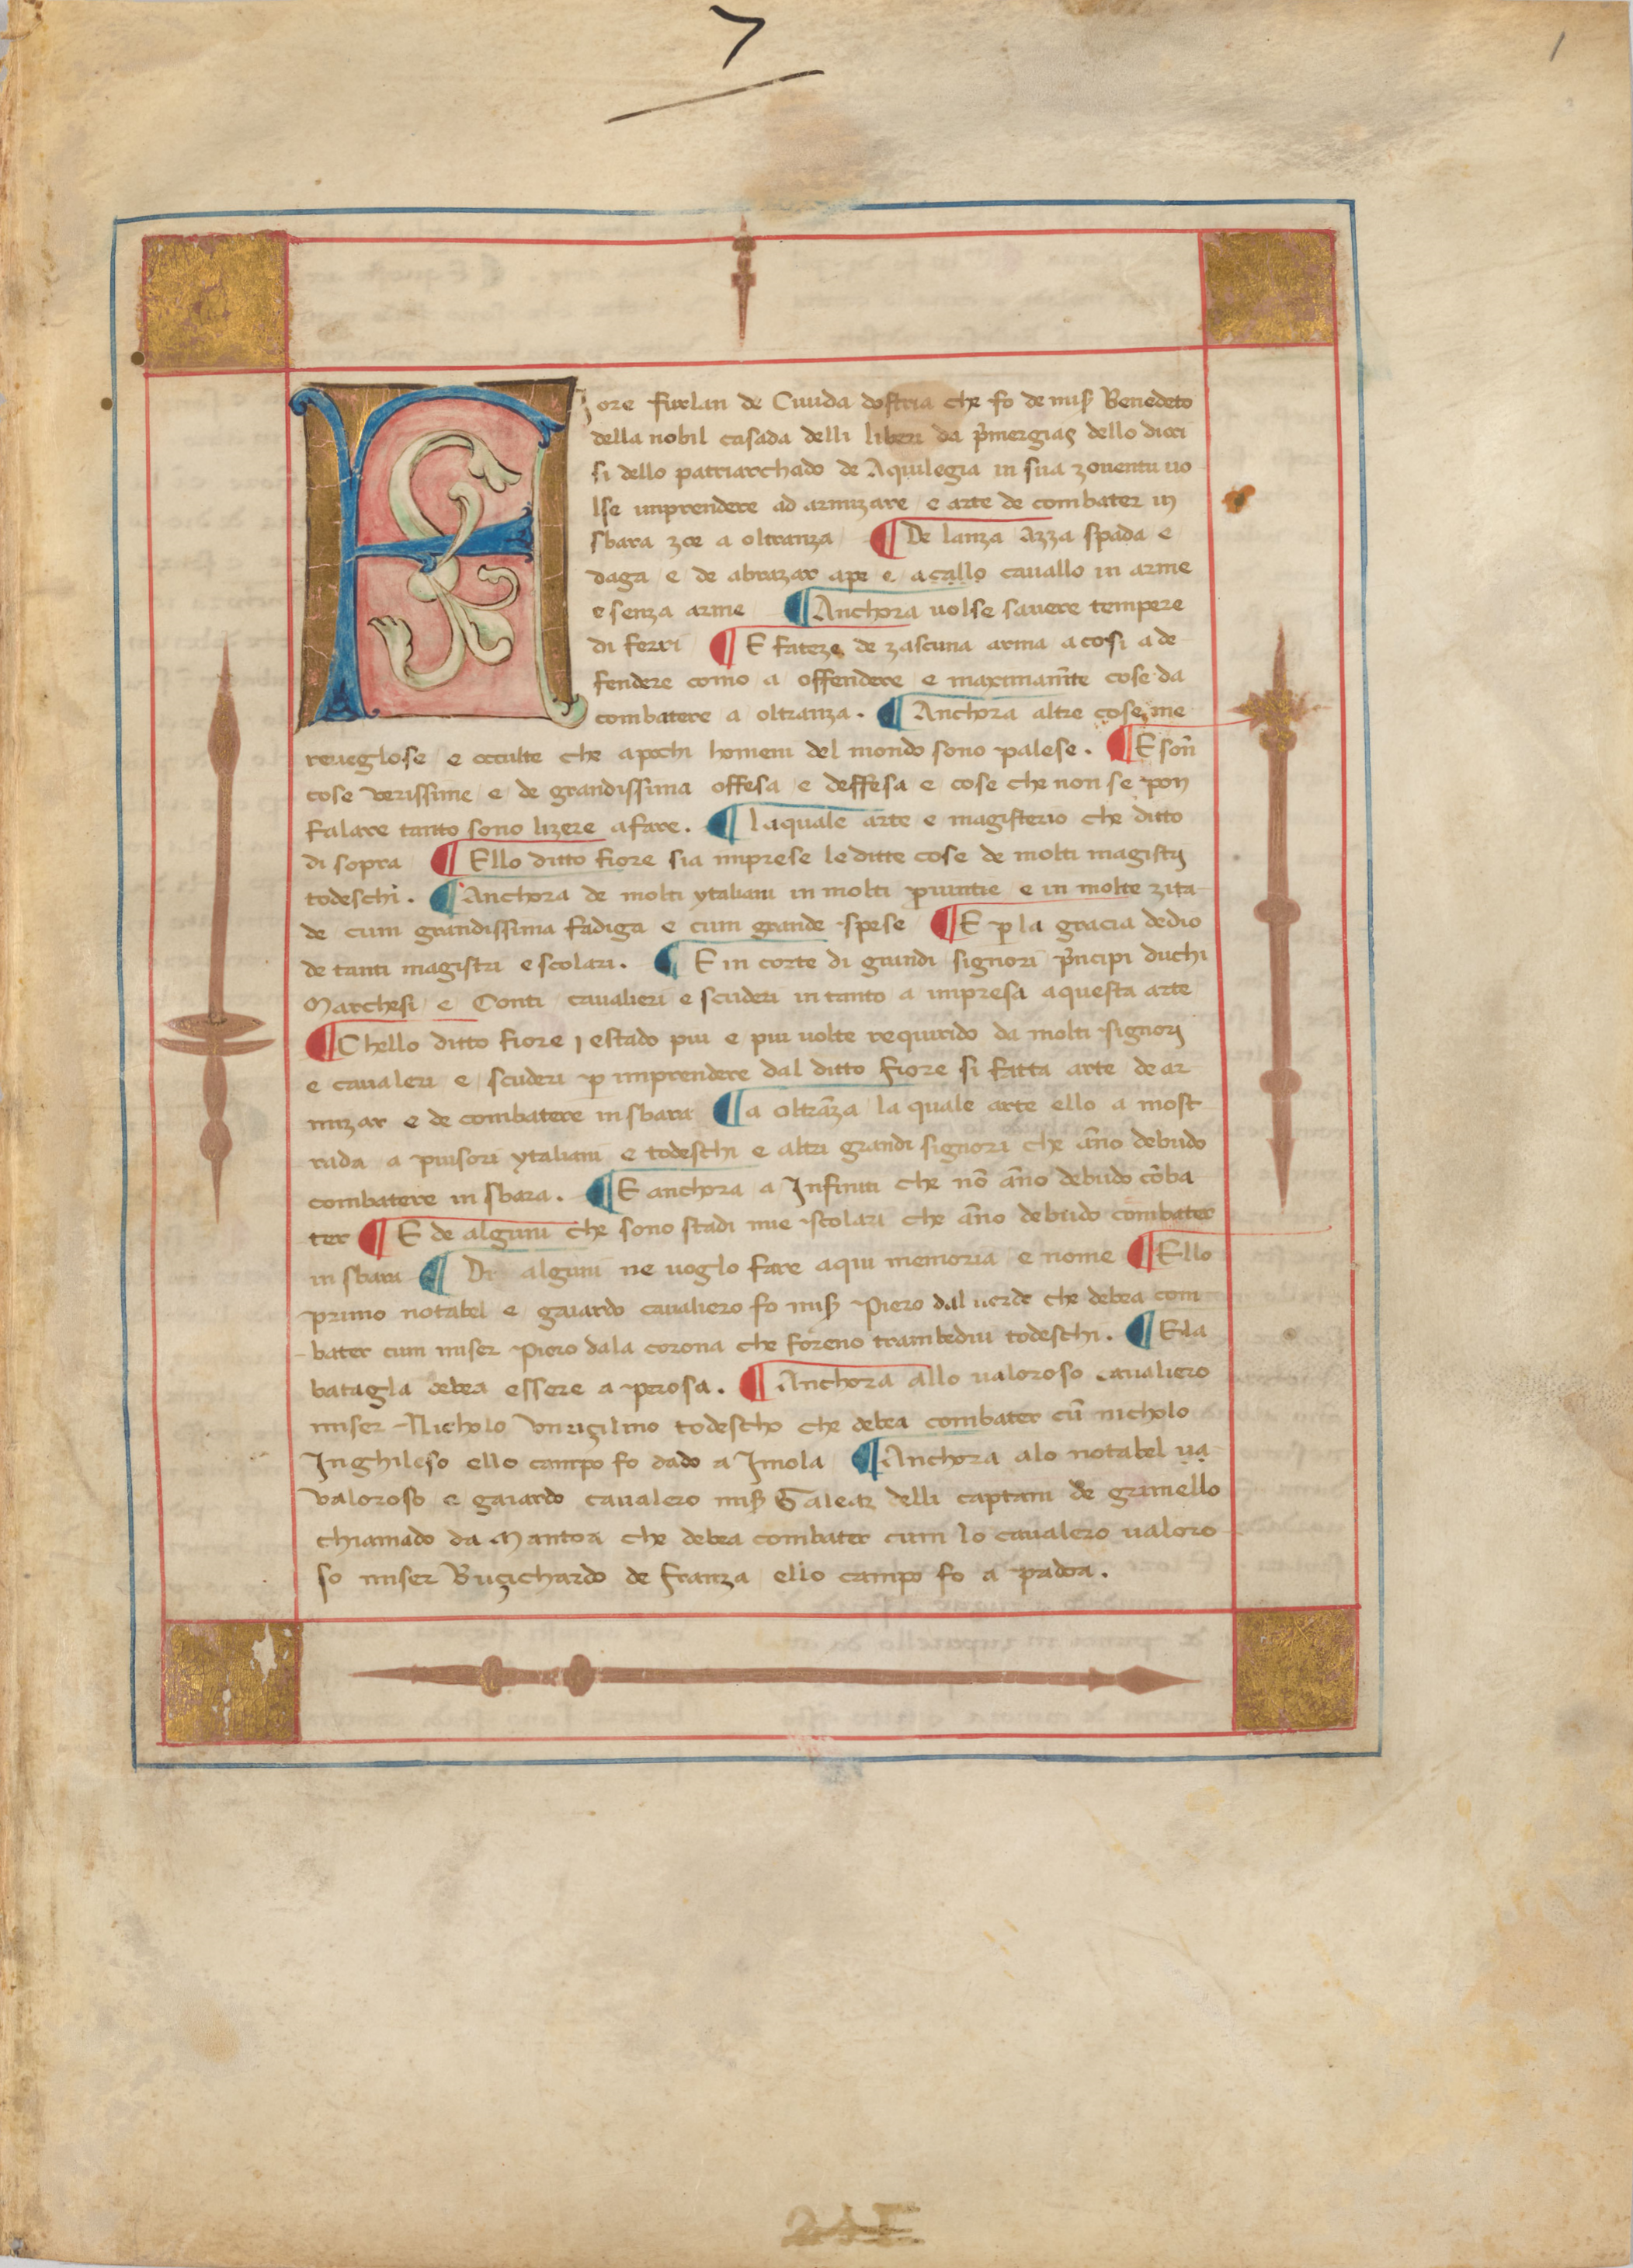 7
1
Fiore furlan de Cividà dostria che fo de mis̃ Benedeto
della nobil casada delli liberi da p̃mergiag dello dioci
si dello patriarchado de Aquilegia in sua zoventu vo
lse imprendere ad armizare e arte de combater in
sbara zoe a oltranza ¶ De lanza Azza spada e
daga e de abrazar a pe e a callo cavallo in arme
e senza arme ¶ Anchora volse savere tempere
di ferri ¶ E fateze de zascuna arma a cosi a de
fendere como a offendere e maximam̃te cose da
combatere a oltranza. ¶ Anchora altre cose me
reveglose e occulte che a pochi homeni del mondo sono palese. ¶ E son̄
cose verissime e de grandissima offesa e deffesa e cose che non se pon
falare tanto sono lizere a fare. ¶ la quale arte e magisterio che ditto
di sopra ¶ Ello ditto fiore sia imprese le ditte cose de molti magistri
todeschi. ¶ Anchora de molti ytaliani in molti p̱vintie e in molte zita
de cum grandissima fadiga e cum grande spese ¶ E p̱ la gracia de dio
de tanti magistri e scolari. ¶ E in corte di grandi signori p̃ncipi duchi
Marchesi e Conti cavalieri e scuderi in tanto a impresa a questa arte
¶ Chello ditto fiore j estado piu e piu volte requirido da molti signori
e cavaleri e scuderi p̱ imprendere dal ditto fiore si fatta arte de ar
mizar e de combatere in sbara ¶ a oltrãza la quale arte ello a most
rada a piusori ytaliani e todeschi e altri grandi signori che ãno debudo
combatere in sbara. ¶ E anchora a Infiniti che nõ ãno debudo cõba
ter ¶ E de alguni che sono stadi mie scolari che ãno debudo combater
in sbara ¶ Di alguni ne voglo fare aqui memoria e nome ¶ Ello
primo notabel e gaiardo cavaliero fo mis̃ Piero dal verde che debea com
bater cum miser Piero dala corona che foreno trambedui todeschi. ¶ E la
batagla debea essere a perosa. ¶ Anchora allo valoroso cavaliero
miser Nicholo Unriçilino todescho che debea combater cũ nicholo
Inghileso ello campo fo dado a Imola ¶ Anchora alo notabel va
valoroso e gaiardo cavalero mis̃ Galeaz delli captani de grimello
chiamado da Mantoa che debea combater cum lo cavalero valoro
so miser Buçichardo de franza ello campo fo a padoa.